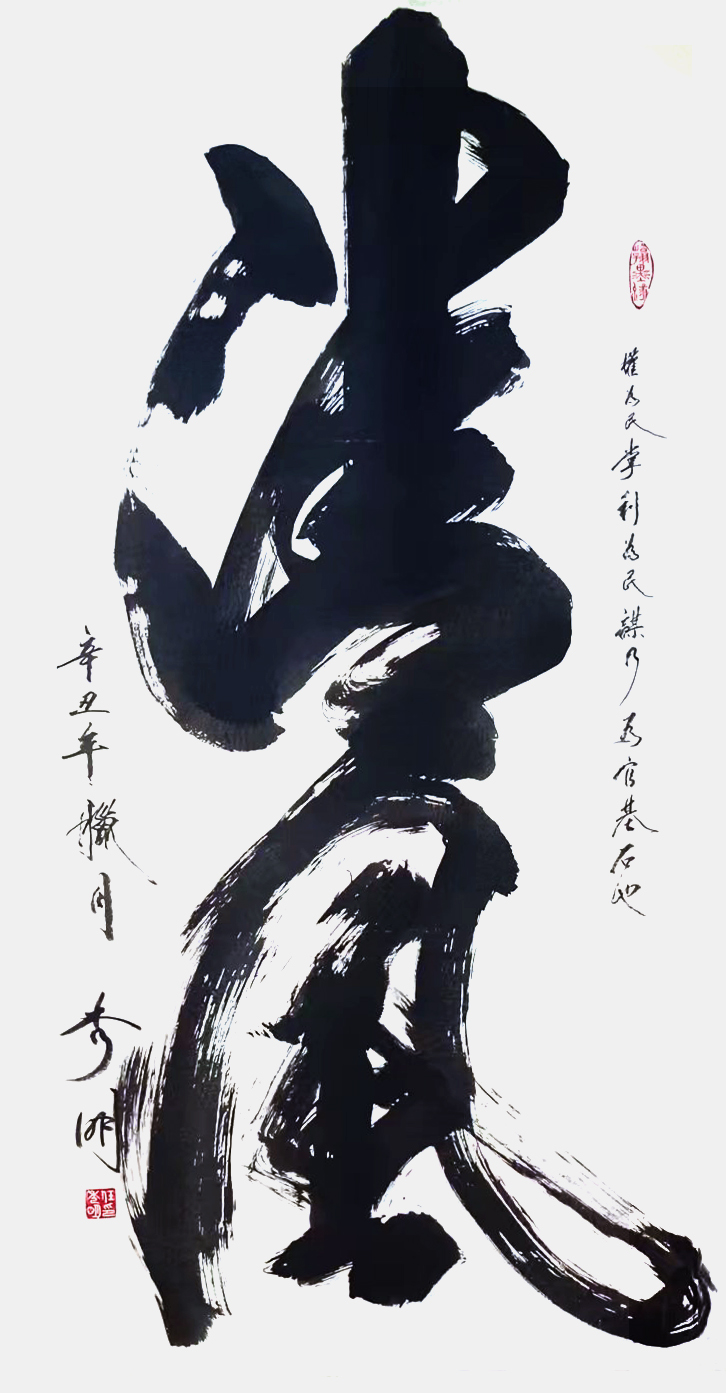 翰墨緣
權為民掌利為民謀乃為官基石也
清風
辛丑年臘月 秀明